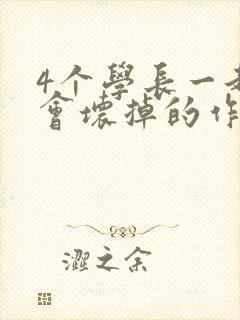 4个學長一
會壞掉的作
澀之余